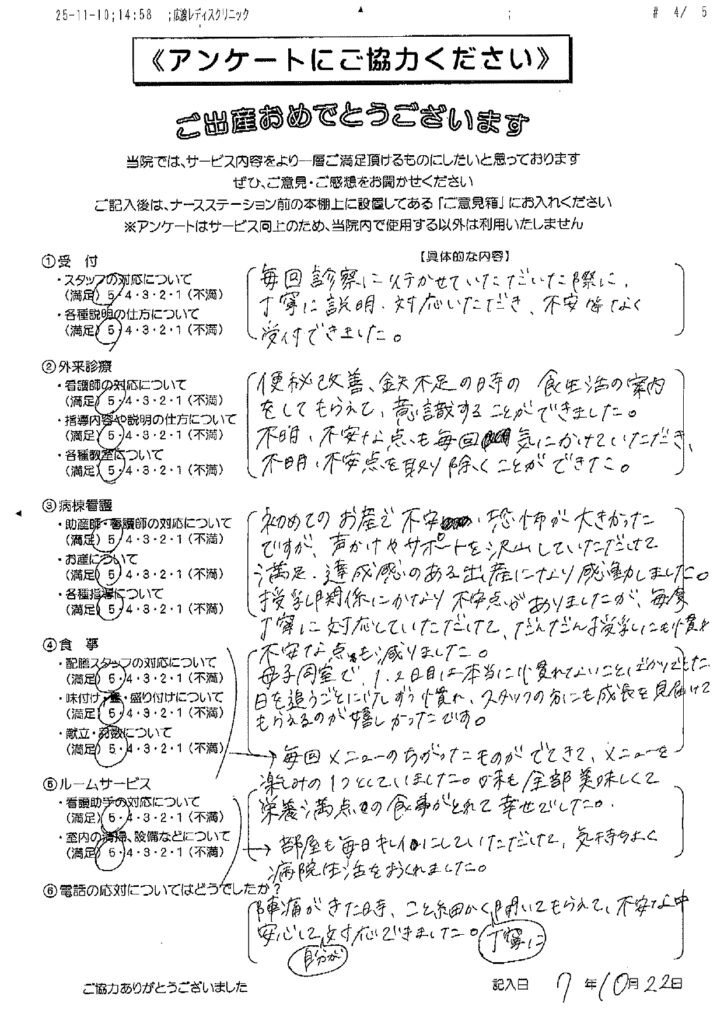 25-11-10;14:58 ;広渡レディスクリニック ; # 4/ 5
《アンケートにご協力ください》
ご出産おめでとうございます
当院では、サービス内容をより一層ご満足頂けるものにしたいと思っております
ぜひ、ご意見・ご感想をお聞かせください
ご記入後は、ナースステーション前の本棚上に設置してある「ご意見箱」にお入れください
※アンケートはサービス向上のため、当院内で使用する以外は利用いたしません
①受 付
【具体的な内容】
・スタッフの対応について
(満足) 5・4・3・2・1 (不満)
・各種説明の仕方について
(満足) 5・4・3・2・1 (不満)
毎回診察に行かせていただいた際に、
丁寧に説明・対応いただき、不安等なく
受付できました。
②外来診療
・看護師の対応について
(満足) 5・4・3・2・1 (不満)
・指導内容や説明の仕方について
(満足) 5・4・3・2・1 (不満)
・各種教室について
(満足) 5・4・3・2・1 (不満)
便秘改善、鉄不足の時の 食生活の案内
をしてもらえて、意識することができました。
不明・不安な点も毎回気にかけていただき、
不明・不安点を取り除くことができた。
③病棟看護
・助産師・看護師の対応について
(満足) 5・4・3・2・1 (不満)
・お産について
(満足) 5・4・3・2・1 (不満)
・各種指導について
(満足) 5・4・3・2・1 (不満)
初めてのお産で不安・恐怖が大きかった
ですが、声かけやサポートを沢山していただけて
満足・達成感のある出産になり感動しました。
授乳関係にかなり不安点がありましたが、毎度
丁寧に対応していただけて、だんだん授乳にも慣れ
不安な点も減りました。
母子同室で、1.2日目は本当に慣れてないことばかりでした
日を追うごとに少しずつ慣れ、スタッフの方にも成長を見届けて
もらえるのが嬉しかったです。
④食 事
・配膳スタッフの対応について
(満足) 5・4・3・2・1 (不満)
・味付け・量・盛り付けについて
(満足) 5・4・3・2・1 (不満)
・献立・お数について
(満足) 5・4・3・2・1 (不満)
→毎回メニューのちがったものがでてきて、メニューを
楽しみの1つとしていました。味も全部美味しくて
栄養満点の食事がとれて幸せでした。
⑤ルームサービス
・看護助手の対応について
(満足) 5・4・3・2・1 (不満)
・室内の清掃、設備などについて
(満足) 5・4・3・2・1 (不満)
→部屋も毎日キレイにしていただけて、気持ちよく
病院生活をおくれました。
⑥電話の応対についてはどうでしたか?
陣痛がきた時、こと細かく聞いてもらえて、不安な中
安心して対応できました。 丁寧に
自分が
ご協力ありがとうございました
記入日 7 年 10月 22日